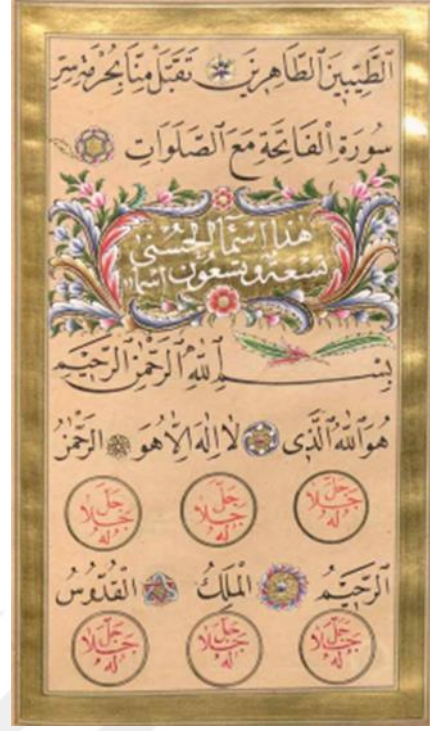 الطَّيِّبِينَ ٱلطَّاهِرِينَ تَقَبَّلْ مِنَّا بِحُرْمَةِ سِرِّ
سُورَةِ ٱلْفَاتِحَةِ مَعَ ٱلصَّلَوَاتِ
هٰذا اسْمَآءُ الْحُسْنٰى
تِسْعَةٌ وَتِسْعُونَ اسْمًا
بِسْمِ ٱللهِ ٱلرَّحْمٰنِ ٱلرَّحِيمِ
هُوَ ٱللهُ ٱلَّذِى لَا إِلٰهَ إِلَّا هُوَ الرَّحْمٰنُ
جَلَّ جَلَالُهُ جَلَّ جَلَالُهُ جَلَّ جَلَالُهُ
الرَّحِيمُ الْمَلِكُ الْقُدُّوسُ
جَلَّ جَلَالُهُ جَلَّ جَلَالُهُ جَلَّ جَلَالُهُ